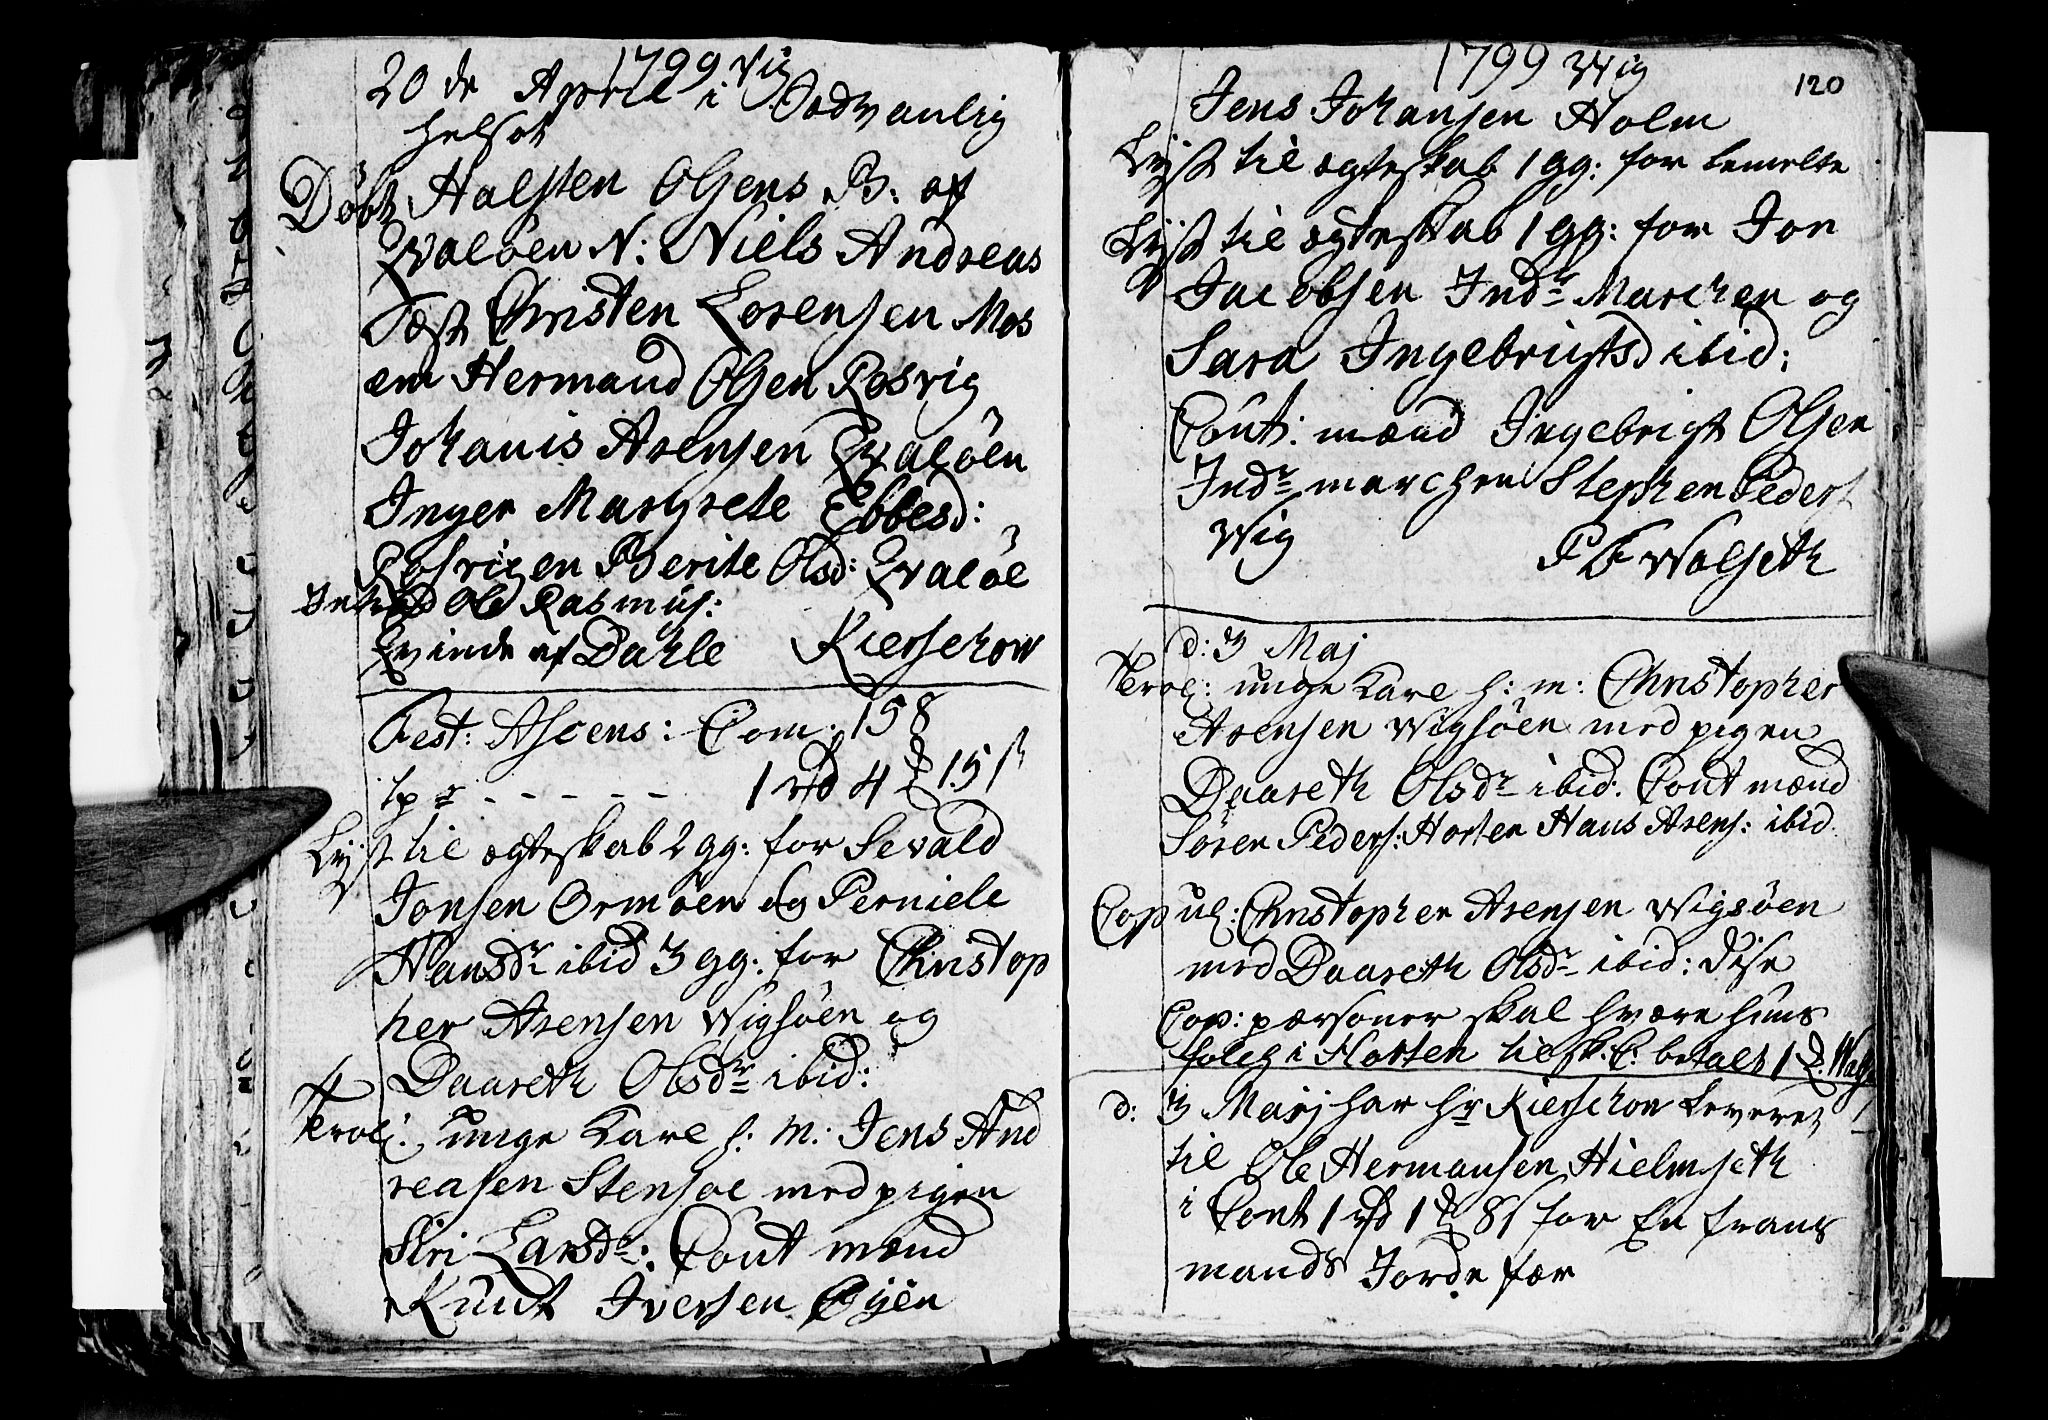 1799 Vig
20de April i Sædvanlig
helsot
Døbt Halsten Olsens B: af
Qvaløen N: Niels Andreas
Test Christen Lorensen Mos
em Hermand Olsen Rosvig
Johanis Arensen Qvaløen
Inger Margrete Ebbesd:
Rosvigen Berite Olsd: Qvaløe
Introd Ole Rasmus:
Qvinde af Dahle Kierschow
Fest: Ascens: Com: 158
1 rd 4 15 s
Lyst til ægteskab 2 gg: for Sevald
Jonsen Ormøen og Perniele
Hansdr ibid 3 gg: for Christop
her Arensen Wigsøen og
Daareth Olsdr ibid:
Trol: unge Karl h: m: Jens And
reasen Stensøe med pigen
Siri Larsdr: Cout mænd
Knut Iversen Øyen
1799 Wig
120
Jens Johansen Holm
Lyst til ægteskab 1 gg: for bemelte
Lyst til ægteskab 1 gg: for Jon
Jacobsen Indr Marchen og
Sara Ingebrigtsd ibid:
Cout: mænd Ingebrigt Olsen
Indr marchen Stephen Peders
Wig
P B Wolseth
d: 3 Maj
Trol: unge Karl h: m: Christopher
Arensen Wigsøen med pigen
Daareth Olsdr ibid. Cout mænd
Søren Peders: Horten Hans Arens: ibid
Copul: Christopher Arensen Wigsøen
med Daareth Olsdr ibid: Disse
Cop: pærsoner skal hvære huus
folch i Horten til sk: C: betalt 1
d: 3 Maij har hr Kierschow Leveret
til Ole Hermansen Hielmseth
i Cont 1 rd 1 8 s for En frans
mands Jorde fær